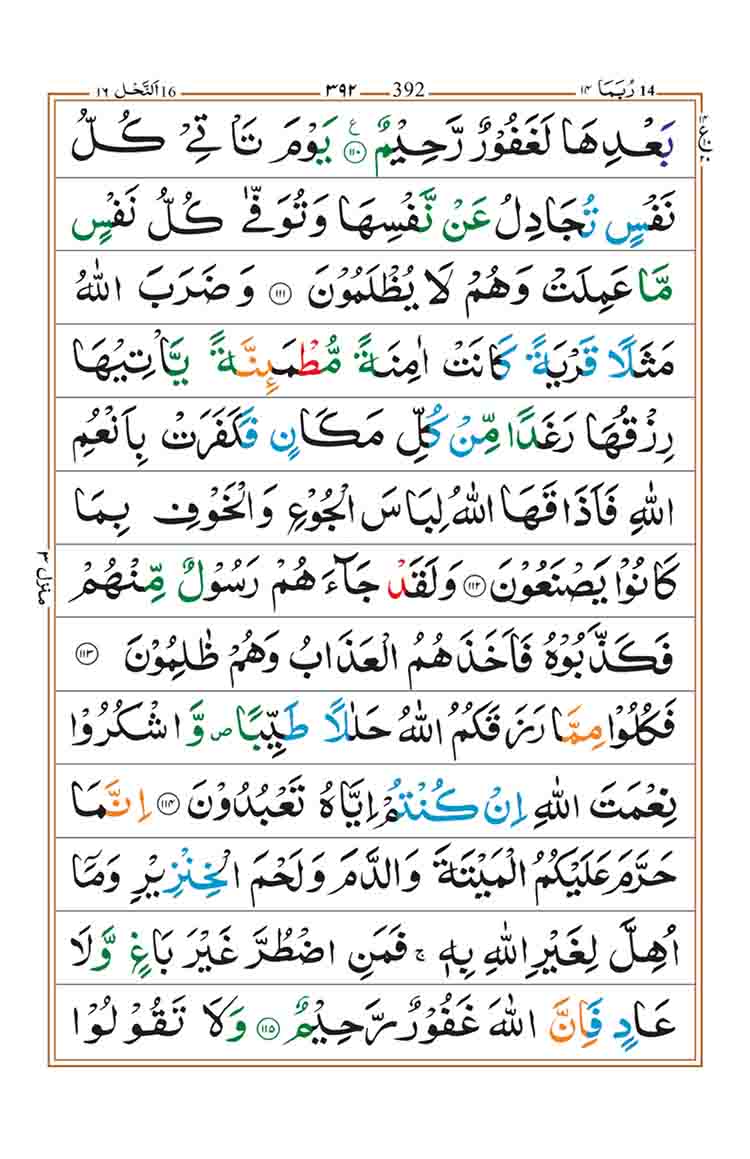 14 رُبَمَا ۱۴ 392 ۳۹۲ 16 اَلنَّحْل ۱۶
بَعْدِهَا لَغَفُوْرٌ رَّحِيْمٌ ﴿۱۱۰﴾ ع يَوْمَ تَاْتِيْ كُلُّ
نَفْسٍ تُجَادِلُ عَنْ نَّفْسِهَا وَتُوَفّٰى كُلُّ نَفْسٍ
مَّا عَمِلَتْ وَهُمْ لَا يُظْلَمُوْنَ ﴿۱۱۱﴾ وَضَرَبَ اللّٰهُ
مَثَلًا قَرْيَةً كَانَتْ اٰمِنَةً مُّطْمَئِنَّةً يَّاْتِيْهَا
رِزْقُهَا رَغَدًا مِّنْ كُلِّ مَكَانٍ فَكَفَرَتْ بِاَنْعُمِ
اللّٰهِ فَاَذَاقَهَا اللّٰهُ لِبَاسَ الْجُوْعِ وَالْخَوْفِ بِمَا
كَانُوْا يَصْنَعُوْنَ ﴿۱۱۲﴾ وَلَقَدْ جَآءَهُمْ رَسُوْلٌ مِّنْهُمْ
فَكَذَّبُوْهُ فَاَخَذَهُمُ الْعَذَابُ وَهُمْ ظٰلِمُوْنَ ﴿۱۱۳﴾
فَكُلُوْا مِمَّا رَزَقَكُمُ اللّٰهُ حَلٰلًا طَيِّبًا ص وَّاشْكُرُوْا
نِعْمَتَ اللّٰهِ اِنْ كُنْتُمْ اِيَّاهُ تَعْبُدُوْنَ ﴿۱۱۴﴾ اِنَّمَا
حَرَّمَ عَلَيْكُمُ الْمَيْتَةَ وَالدَّمَ وَلَحْمَ الْخِنْزِيْرِ وَمَآ
اُهِلَّ لِغَيْرِ اللّٰهِ بِهٖ ج فَمَنِ اضْطُرَّ غَيْرَ بَاغٍ وَّلَا
عَادٍ فَاِنَّ اللّٰهَ غَفُوْرٌ رَّحِيْمٌ ﴿۱۱۵﴾ وَلَا تَقُوْلُوْا
منزل ۳